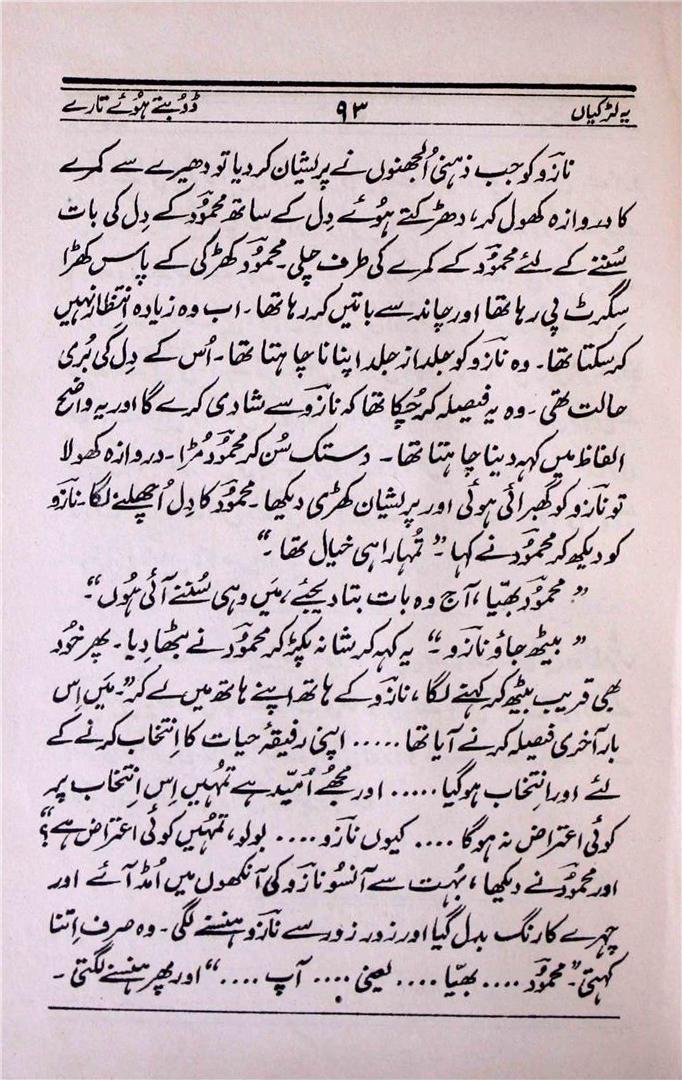 یہ لڑکیاں ۹۳ ڈوبتے ہُوئے تارے
نازؔو کو جب ذہنی اُلجھنوں نے پریشان کر دیا تو دھیرے سے کمرے
کا دروازہ کھول کر، دھڑکتے ہُوئے دِل کے ساتھ محمودؔ کے دِل کی بات
سُننے کے لئے محمودؔ کے کمرے کی طرف چلی۔ محمودؔ کھڑکی کے پاس کھڑا
سگرٹ پی رہا تھا اور چاند سے باتیں کر رہا تھا۔ اب وہ زیادہ اِنتظار نہیں
کر سکتا تھا۔ وہ نازؔو کو جلد از جلد اپنانا چاہتا تھا۔ اُس کے دِل کی بُری
حالت تھی۔ وہ یہ فیصلہ کر چُکا تھا کہ نازؔو سے شادی کرے گا اور یہ واضح
الفاظ میں کہہ دینا چاہتا تھا۔ دستک سُن کر محمودؔ مُڑا۔ دروازہ کھولا
تو نازؔو کو گھبرائی ہوئی اور پریشان کھڑی دیکھا۔ محمودؔ کا دِل اُچھلنے لگا۔ نازؔو
کو دیکھ کر محمودؔ نے کہا۔ ”تُمہارا ہی خیال تھا۔“
”محمودؔ بھیّا، آج وہ بات بتا دیجئے، مَیں وہی سُننے آئی ہُوں“۔
”بیٹھ جاؤ نازؔو۔“ یہ کہہ کر شانہ پکڑ کر محمودؔ نے بٹھا دِیا۔ پھر خُود
بھی قریب بیٹھ کر کہنے لگا، نازؔو کے ہاتھ اپنے ہاتھ میں لے کر”۔ مَیں اِس
بار آخری فیصلہ کرنے آیا تھا ..... اپنی رفیقۂ حیات کا اِنتخاب کرنے کے
لئے اور اِنتخاب ہو گیا ..... اور مجھے اُمیّد ہے تمُہیں اِس اِنتخاب پر
کوئی اعتراض نہ ہو گا .... کیوں نازؔو .... بولو، تمہُیں کوئی اعتراض ہے؟“
اور محمودؔ نے دیکھا، بہُت سے آنسُو نازؔو کی آنکھوں میں اُمڈ آئے اور
چہرے کا رنگ بدل گیا اور زور زور سے نازؔو ہنسنے لگی۔ وہ صرف اِتنا
کہتی ”محمودؔ .... بھیّا .... یعنی .... آپ ....“ اور پھر ہنسنے لگتی۔